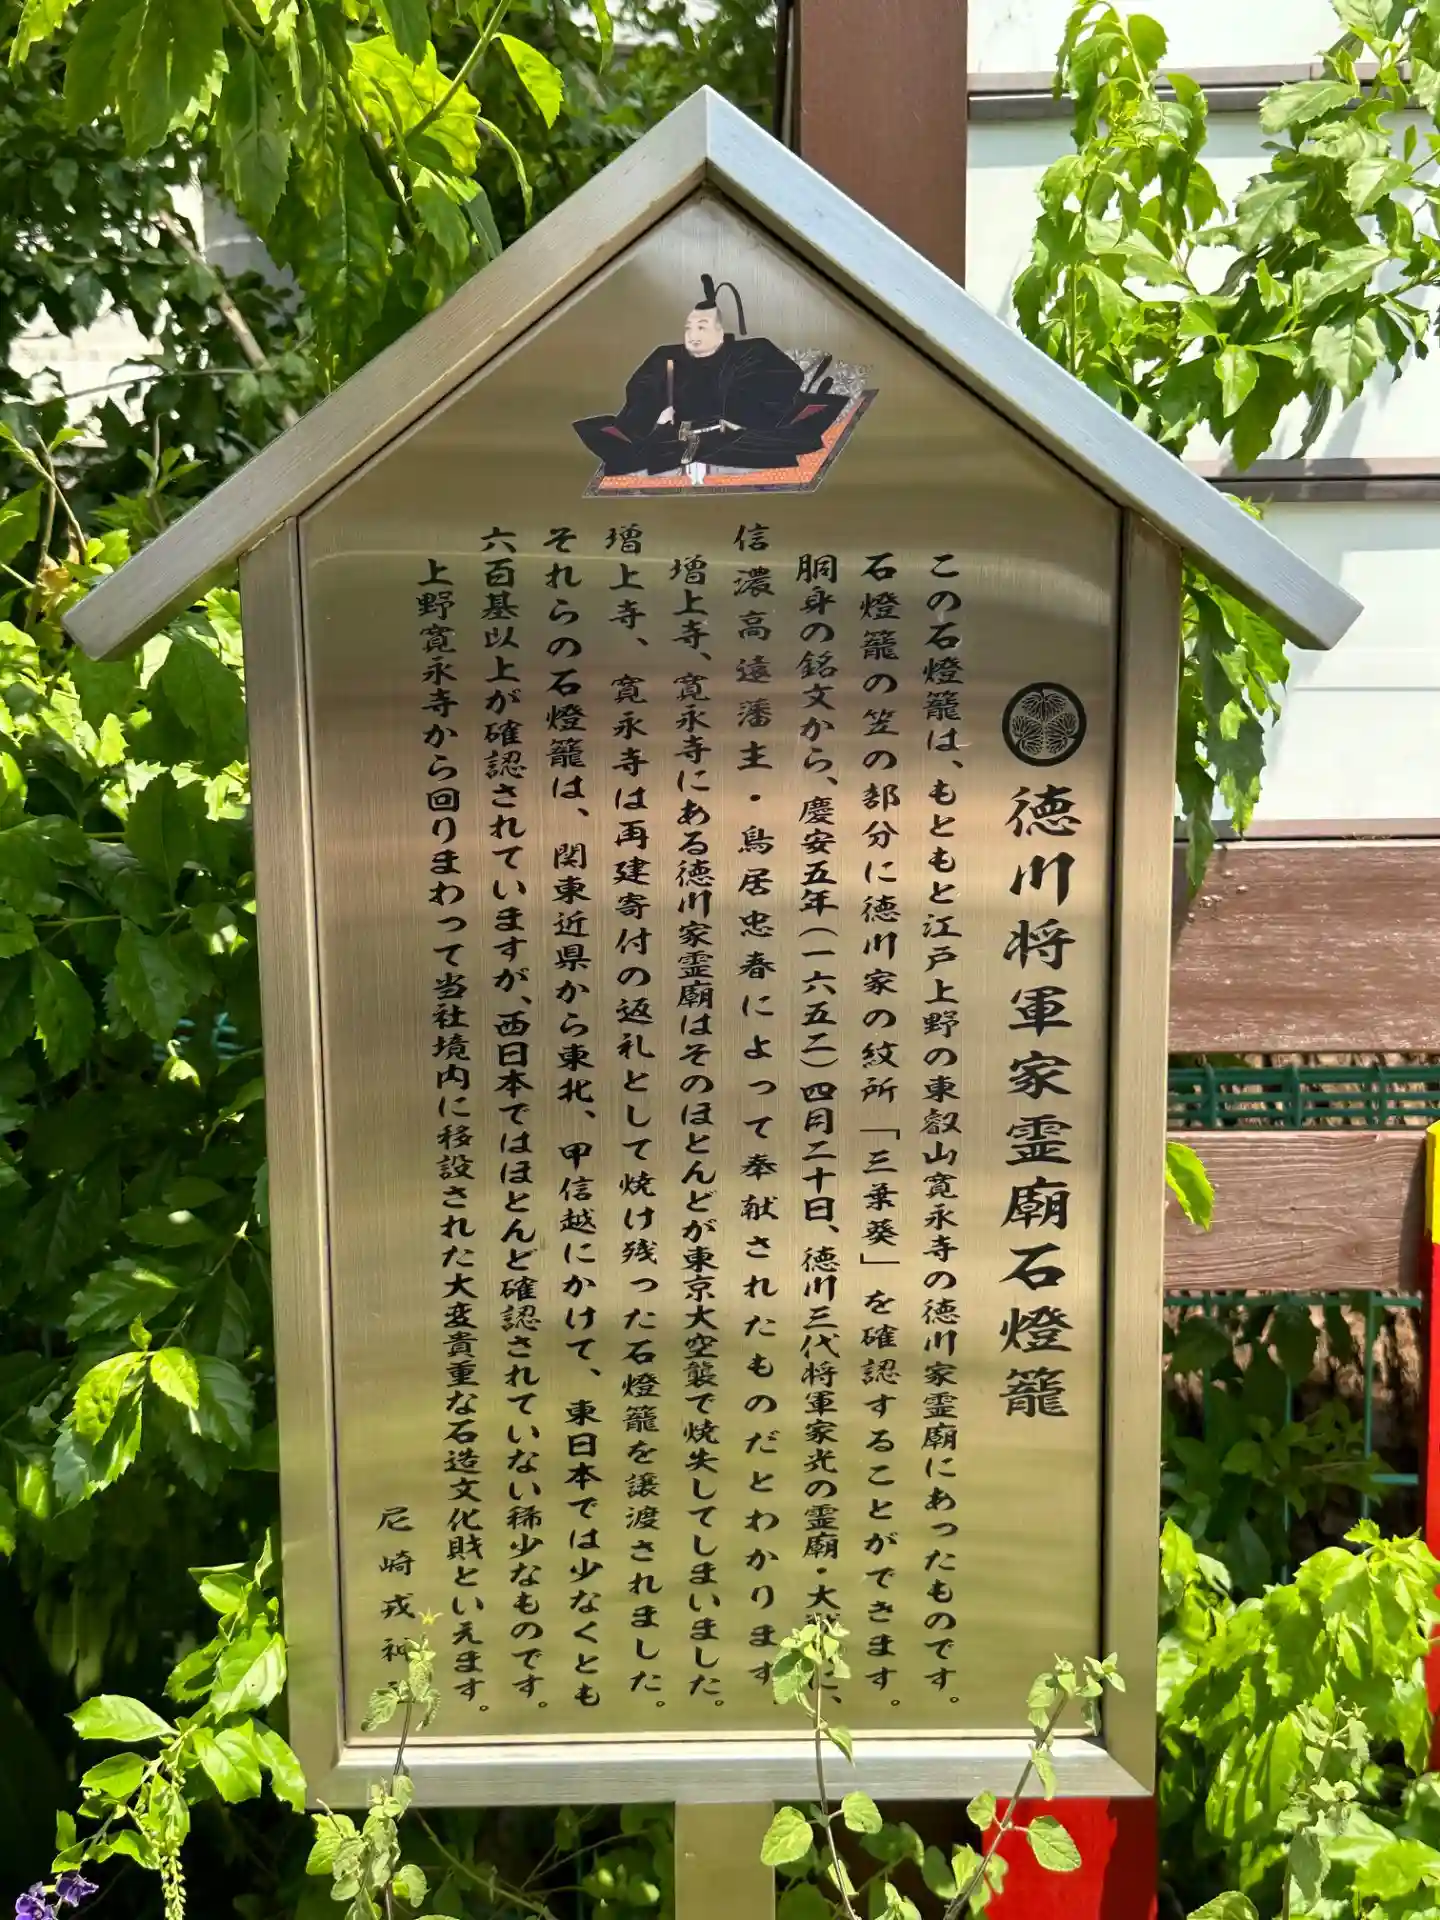 徳川将軍家霊廟石燈籠
この石燈籠は、もともと江戸上野の東叡山寛永寺の徳川家霊廟にあったものです。
石燈籠の笠の部分に徳川家の紋所「三葉葵」を確認することができます。
胴身の銘文から、慶安五年(一六五二)四月二十日、徳川三代将軍家光の霊廟・大に、
信濃高遠藩主・鳥居忠春によって奉献されたものだとわかります
増上寺、寛永寺にある徳川家霊廟はそのほとんどが東京大空襲で焼失してしまいました。
増上寺、寛永寺は再建寄付の返礼として焼け残った石燈籠を譲渡されました。
それらの石燈籠は、関東近県から東北、甲信越にかけて、東日本では少なくとも
六百基以上が確認されていますが、西日本ではほとんど確認されていない稀少なものです。
上野寛永寺から回りまわって当社境内に移設された大変貴重な石造文化財といえます。
尼崎戎神